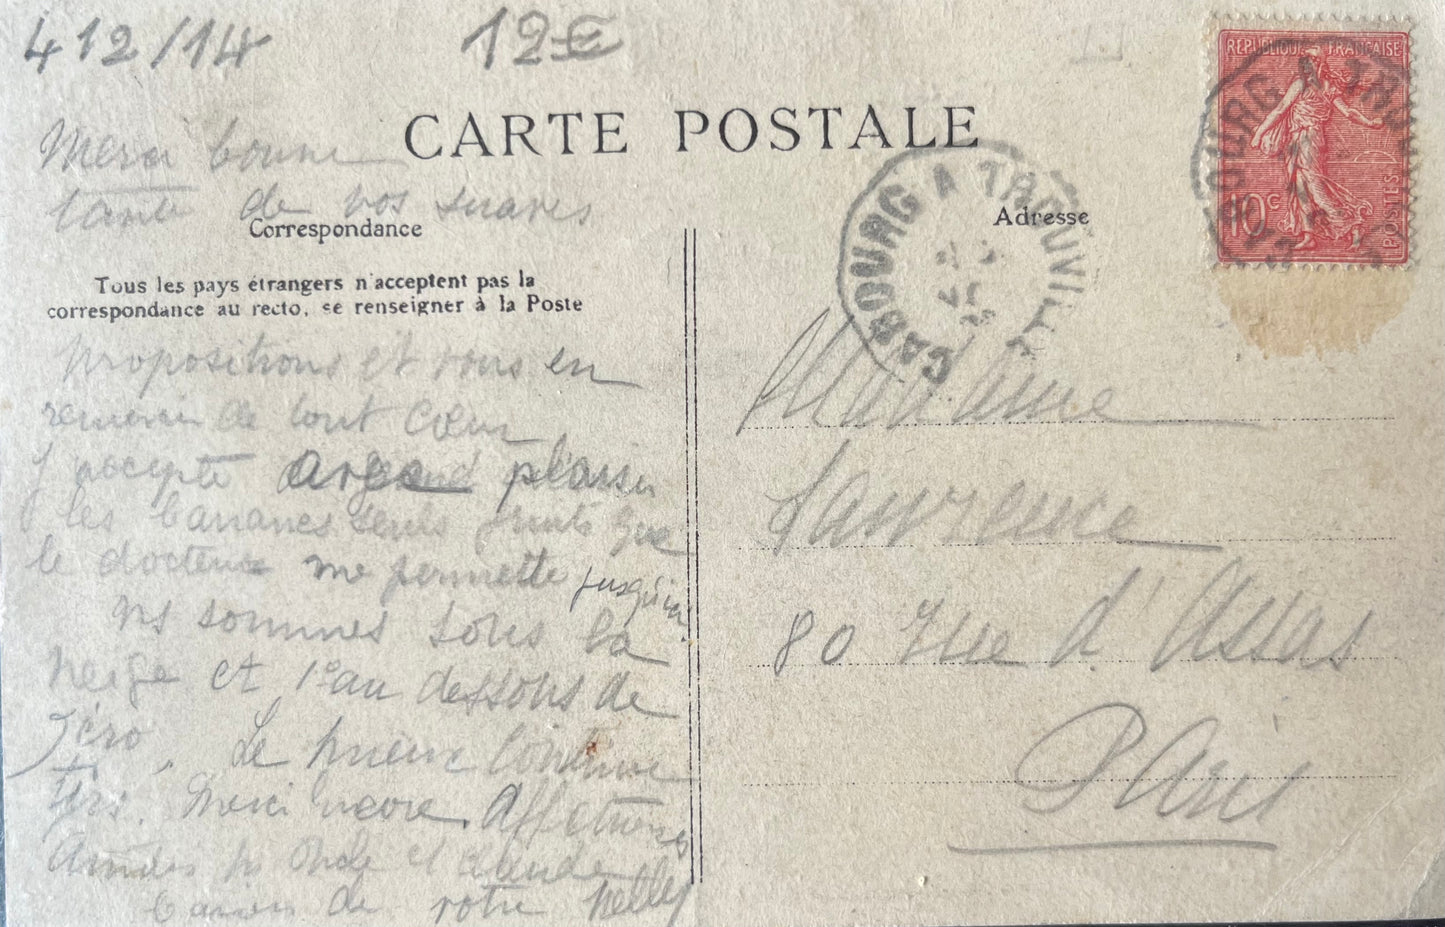 412/14
12€
CARTE POSTALE
Merci bonne
tante de vos suaves
Correspondance
Tous les pays étrangers n'acceptent pas la
correspondance au recto, se renseigner à la Poste
propositions et vous en
remercie de tout cœur
J'accepte avec grand plaisir
les bananes seuls fruits que
le docteur me permette jusqu'ici.
ns sommes sous la
neige et 1° au dessous de
zéro. Le mieux continue
tjrs. Merci encore. Affectueuses
Amitiés pr Oncle et Claude
de votre Nelly
REPUBLIQUE FRANÇAISE
10c
POSTES
CABOURG A TROUVILLE
CABOURG A TROUVILLE
Adresse
Madame
Lawrence
80 rue d'Assas
Paris